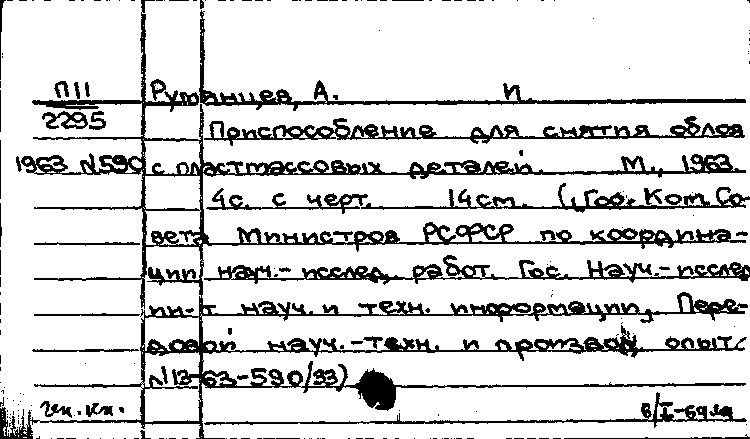 ПII Румянцев, А. И.
2295 Приспособление для снятия облоя
1963 №590 с пластмассовых деталей. М., 1963.
4с. с черт. 14см. (Гос. Ком. Со-
вета Министров РСФСР по координа-
ции науч.-исслед. работ. Гос. Науч.-исслед
ин-т науч. и техн. информации. Пере-
довой науч.-техн. и производ. опыт.
№13-63-590/93)